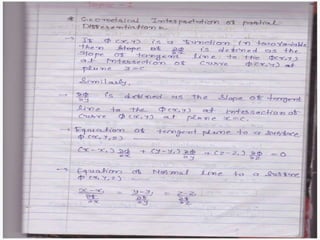 * Geometrical Interpretation of partial
Differentiation.
→ If φ(x,y) is a function in two variable
then slope of ∂φ/∂x is defined as the
slope of tangent line to the φ(x,y)
at intersection of curve φ(x,y) at
plane z=c
Similarly,
∂φ/∂y is defined as the slope of tangent
line to the φ(x,y) at intersection of
curve φ(x,y) at plane x=c.
→ Equation of tangent plane to a surface
φ(x,y,z)
(x-x₁) ∂φ/∂x + (y-y₁) ∂φ/∂y + (z-z₁) ∂φ/∂z = 0
→ Equation of Normal line to a surface
φ(x,y,z)
x-x₁ / ∂φ/∂x = y-y₁ / ∂φ/∂y = z-z₁ / ∂φ/∂z